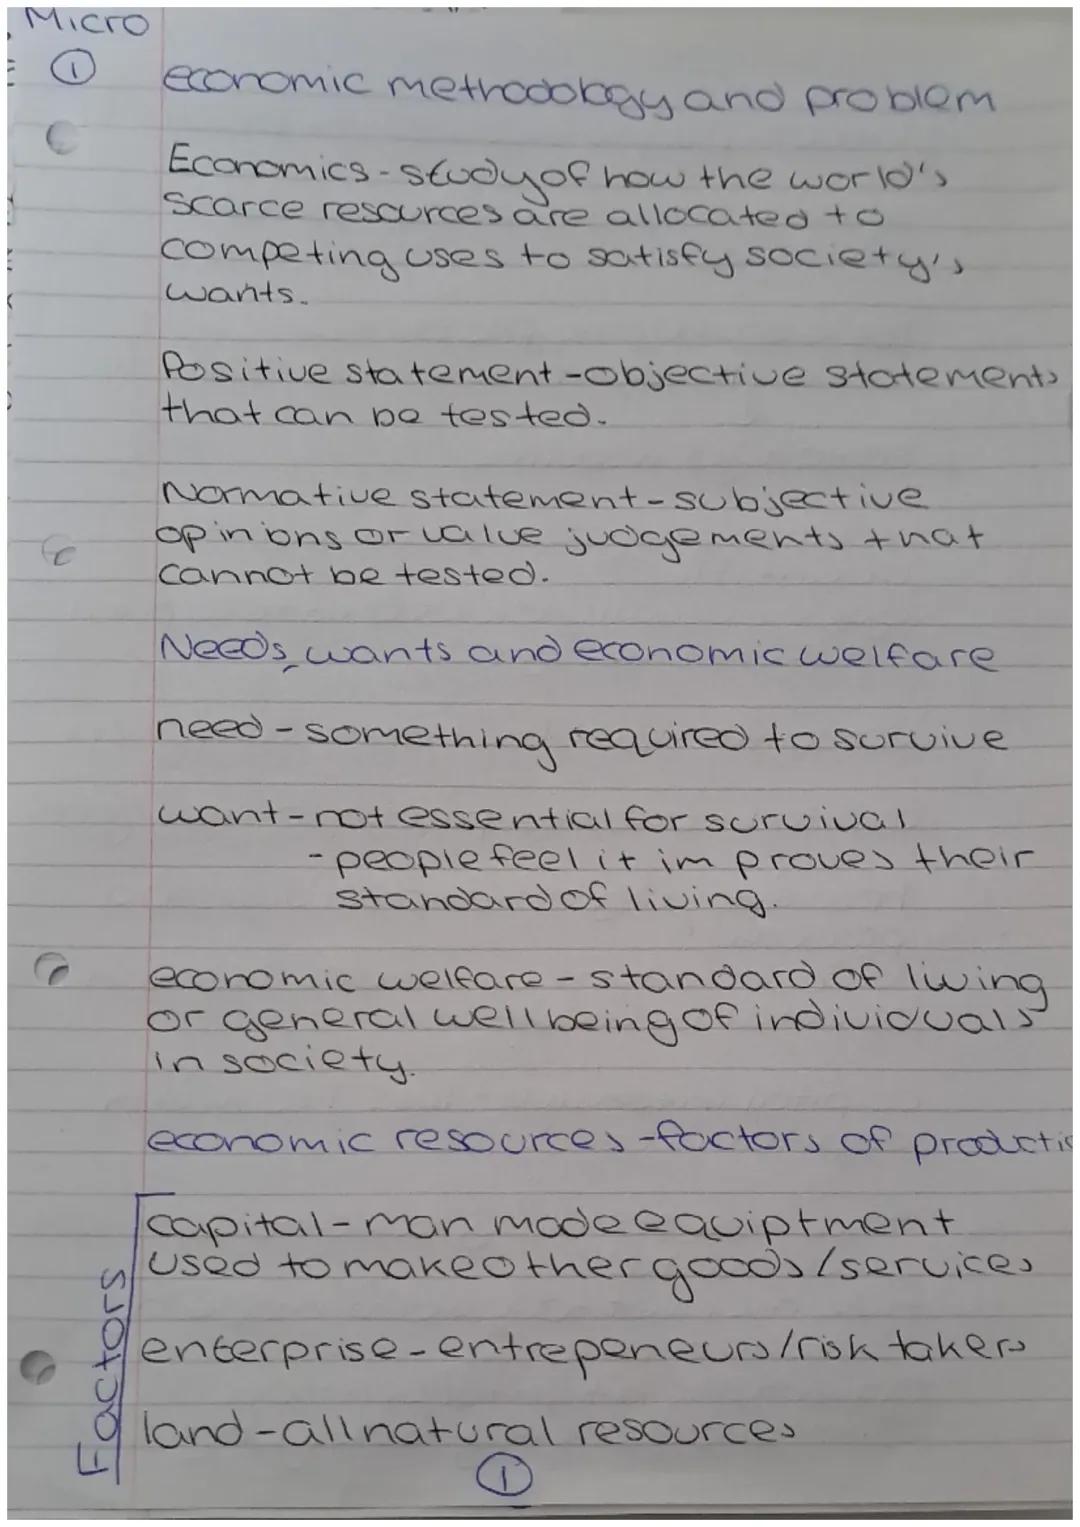 Micro
①
economic methodology and problem
Economics - study of how the world's
scarce resources are allocated to
competing uses to satisfy society's
wants.
Positive statement - objective statements
that can be tested.
Normative statement - subjective
opinions or value judgements that
cannot be tested.
Needs, wants and economic welfare
need - something required to survive
want - not essential for survival
- people feel it improves their
standard of living.
economic welfare - standard of living
or general wellbeing of individuals
in society.
economic resources - factors of productio
Factors
capital - man made equiptment
used to make other goods/services
enterprise - entrepeneurs/risk takers
land - all natural resources
①